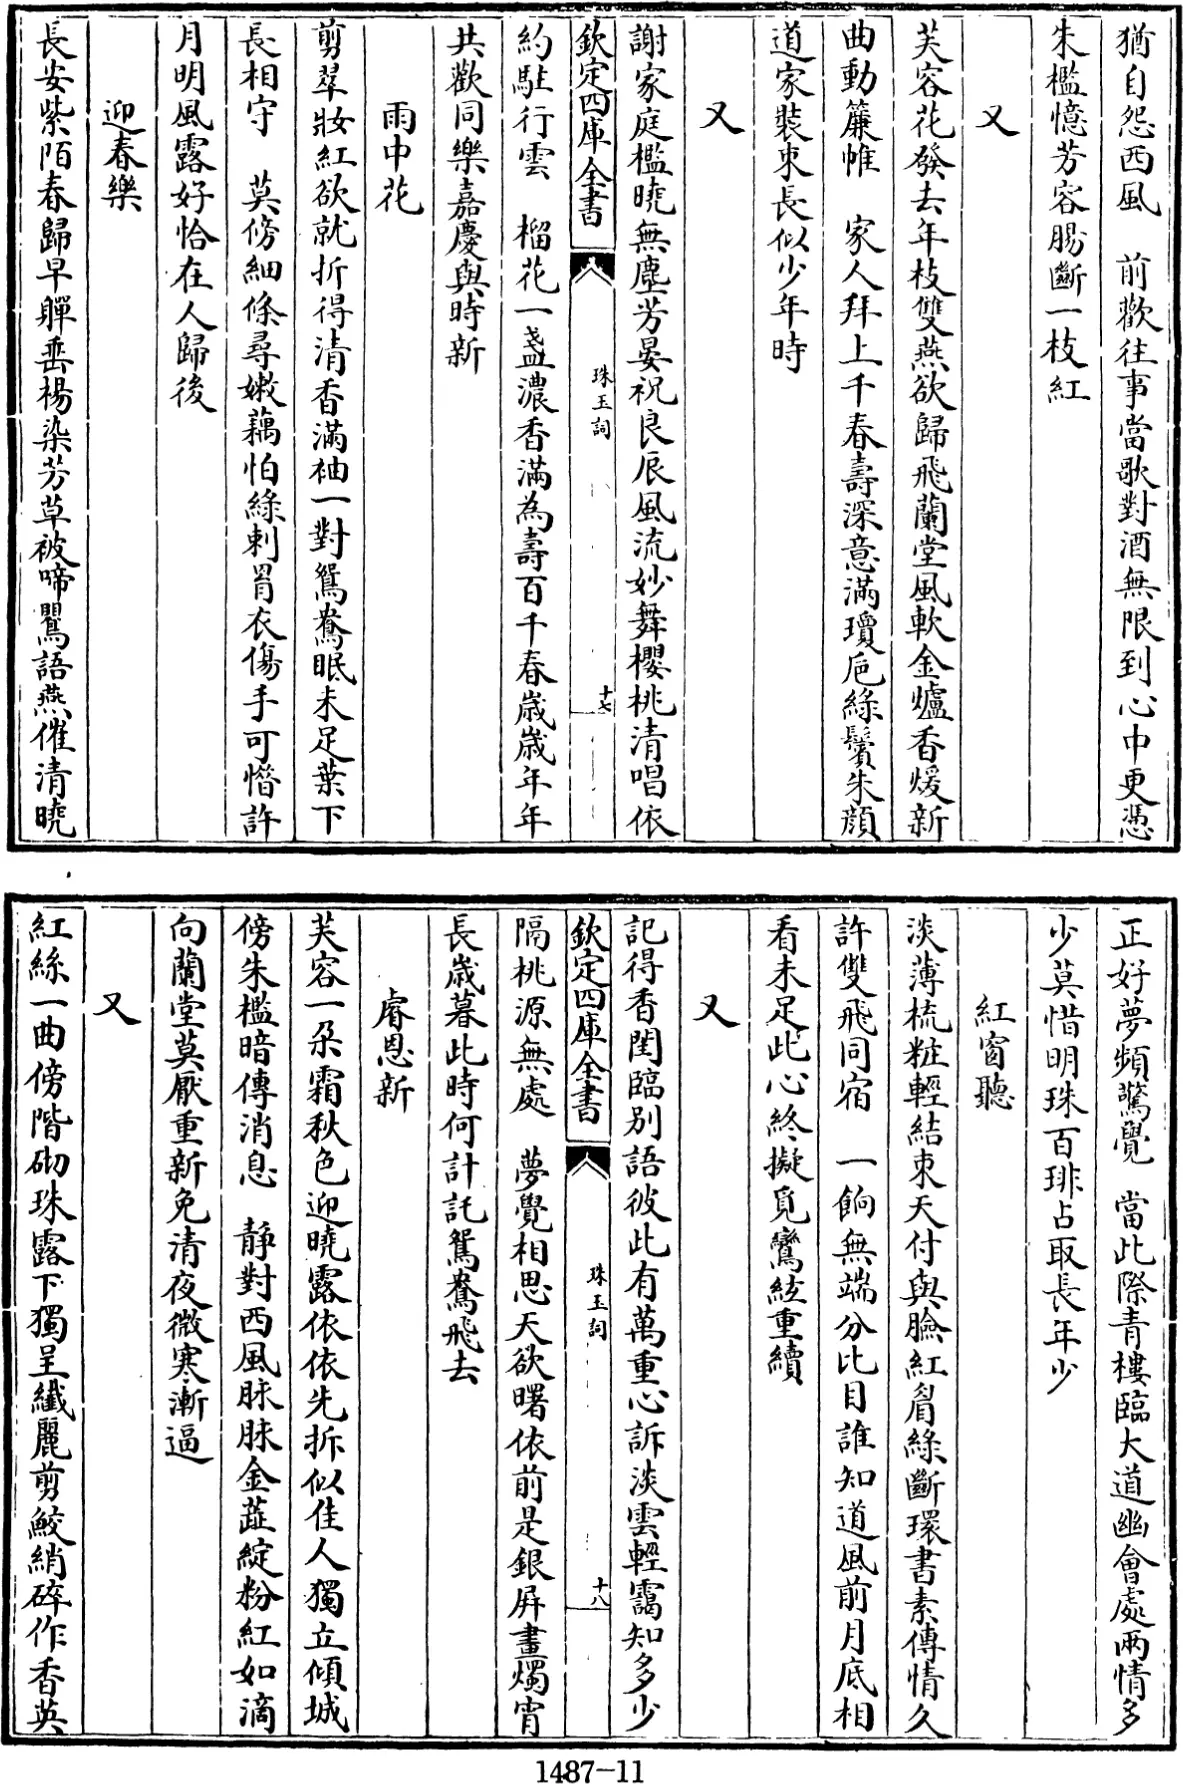 猶自怨西風　前歡往事當歌對酒無限到心中更憑
朱檻憶芳容腸斷一枝紅
又
芙容花發去年枝雙燕欲歸飛蘭堂風軟金爐香煖新
曲動簾帷　家人拜上千春壽深意滿瓊巵綠鬢朱顔
道家裝束長似少年時
又
謝家庭檻曉無塵芳宴祝良辰風流妙舞櫻桃清唱依
欽定四庫全書
珠玉詞
十七
約駐行雲　榴花一盞濃香滿為壽百千春歲歲年年
共歡同樂嘉慶與時新
雨中花
剪翠妝紅欲就折得清香滿袖一對鴛鴦眠未足葉下
長相守　莫傍細條尋嫩藕怕綠刺罥衣傷手可惜許
月明風露好恰在人歸後
迎春樂
長安紫陌春歸早嚲垂楊染芳草被啼鸎語燕催清曉
正好夢頻驚覺　當此際青樓臨大道幽會處兩情多
少莫惜明珠百琲占取長年少
紅窗聽
淡薄梳粧輕結束天付與臉紅眉綠斷環書素傳情久
許雙飛同宿　一餉無端分比目誰知道風前月底相
看未足此心終擬覓鸞絃重續
又
記得香閨臨别語彼此有萬重心訴淡雲輕靄知多少
欽定四庫全書
珠玉詞
十八
隔桃源無處　夢覺相思天欲曙依前是銀屏畫燭宵
長歲暮此時何計託鴛鴦飛去
睿恩新
芙容一朶霜秋色迎曉露依依先拆似佳人獨立傾城
傍朱檻暗傳消息　静對西風脉脉金蕋綻粉紅如滴
向蘭堂莫厭重新免清夜微寒漸逼
又
紅絲一曲傍階砌珠露下獨呈纖麗剪鮫綃碎作香英
1487-11